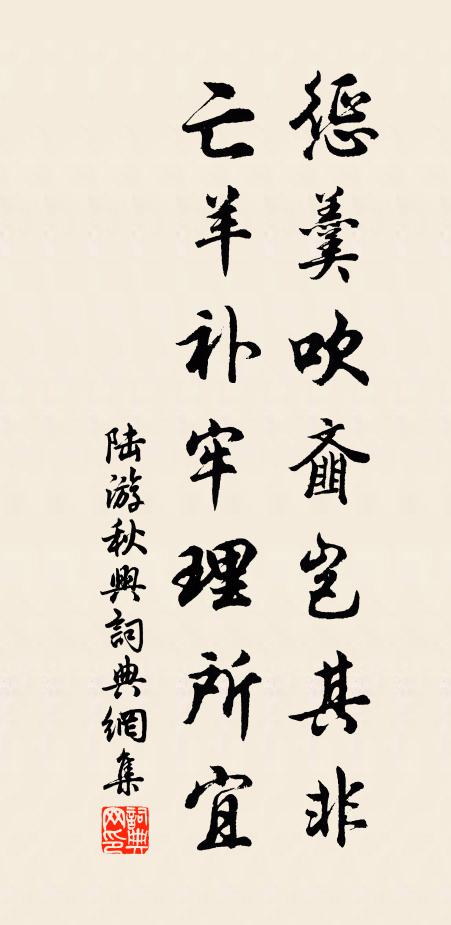 惩羹吹齑岂其非
亡羊补牢理所宜
陆游秋興詞典網集
詞典网印